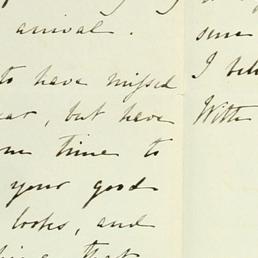 arrival.
to have missed
ear, but have
me time to
your good
looks, and
that
sense
I bel
With